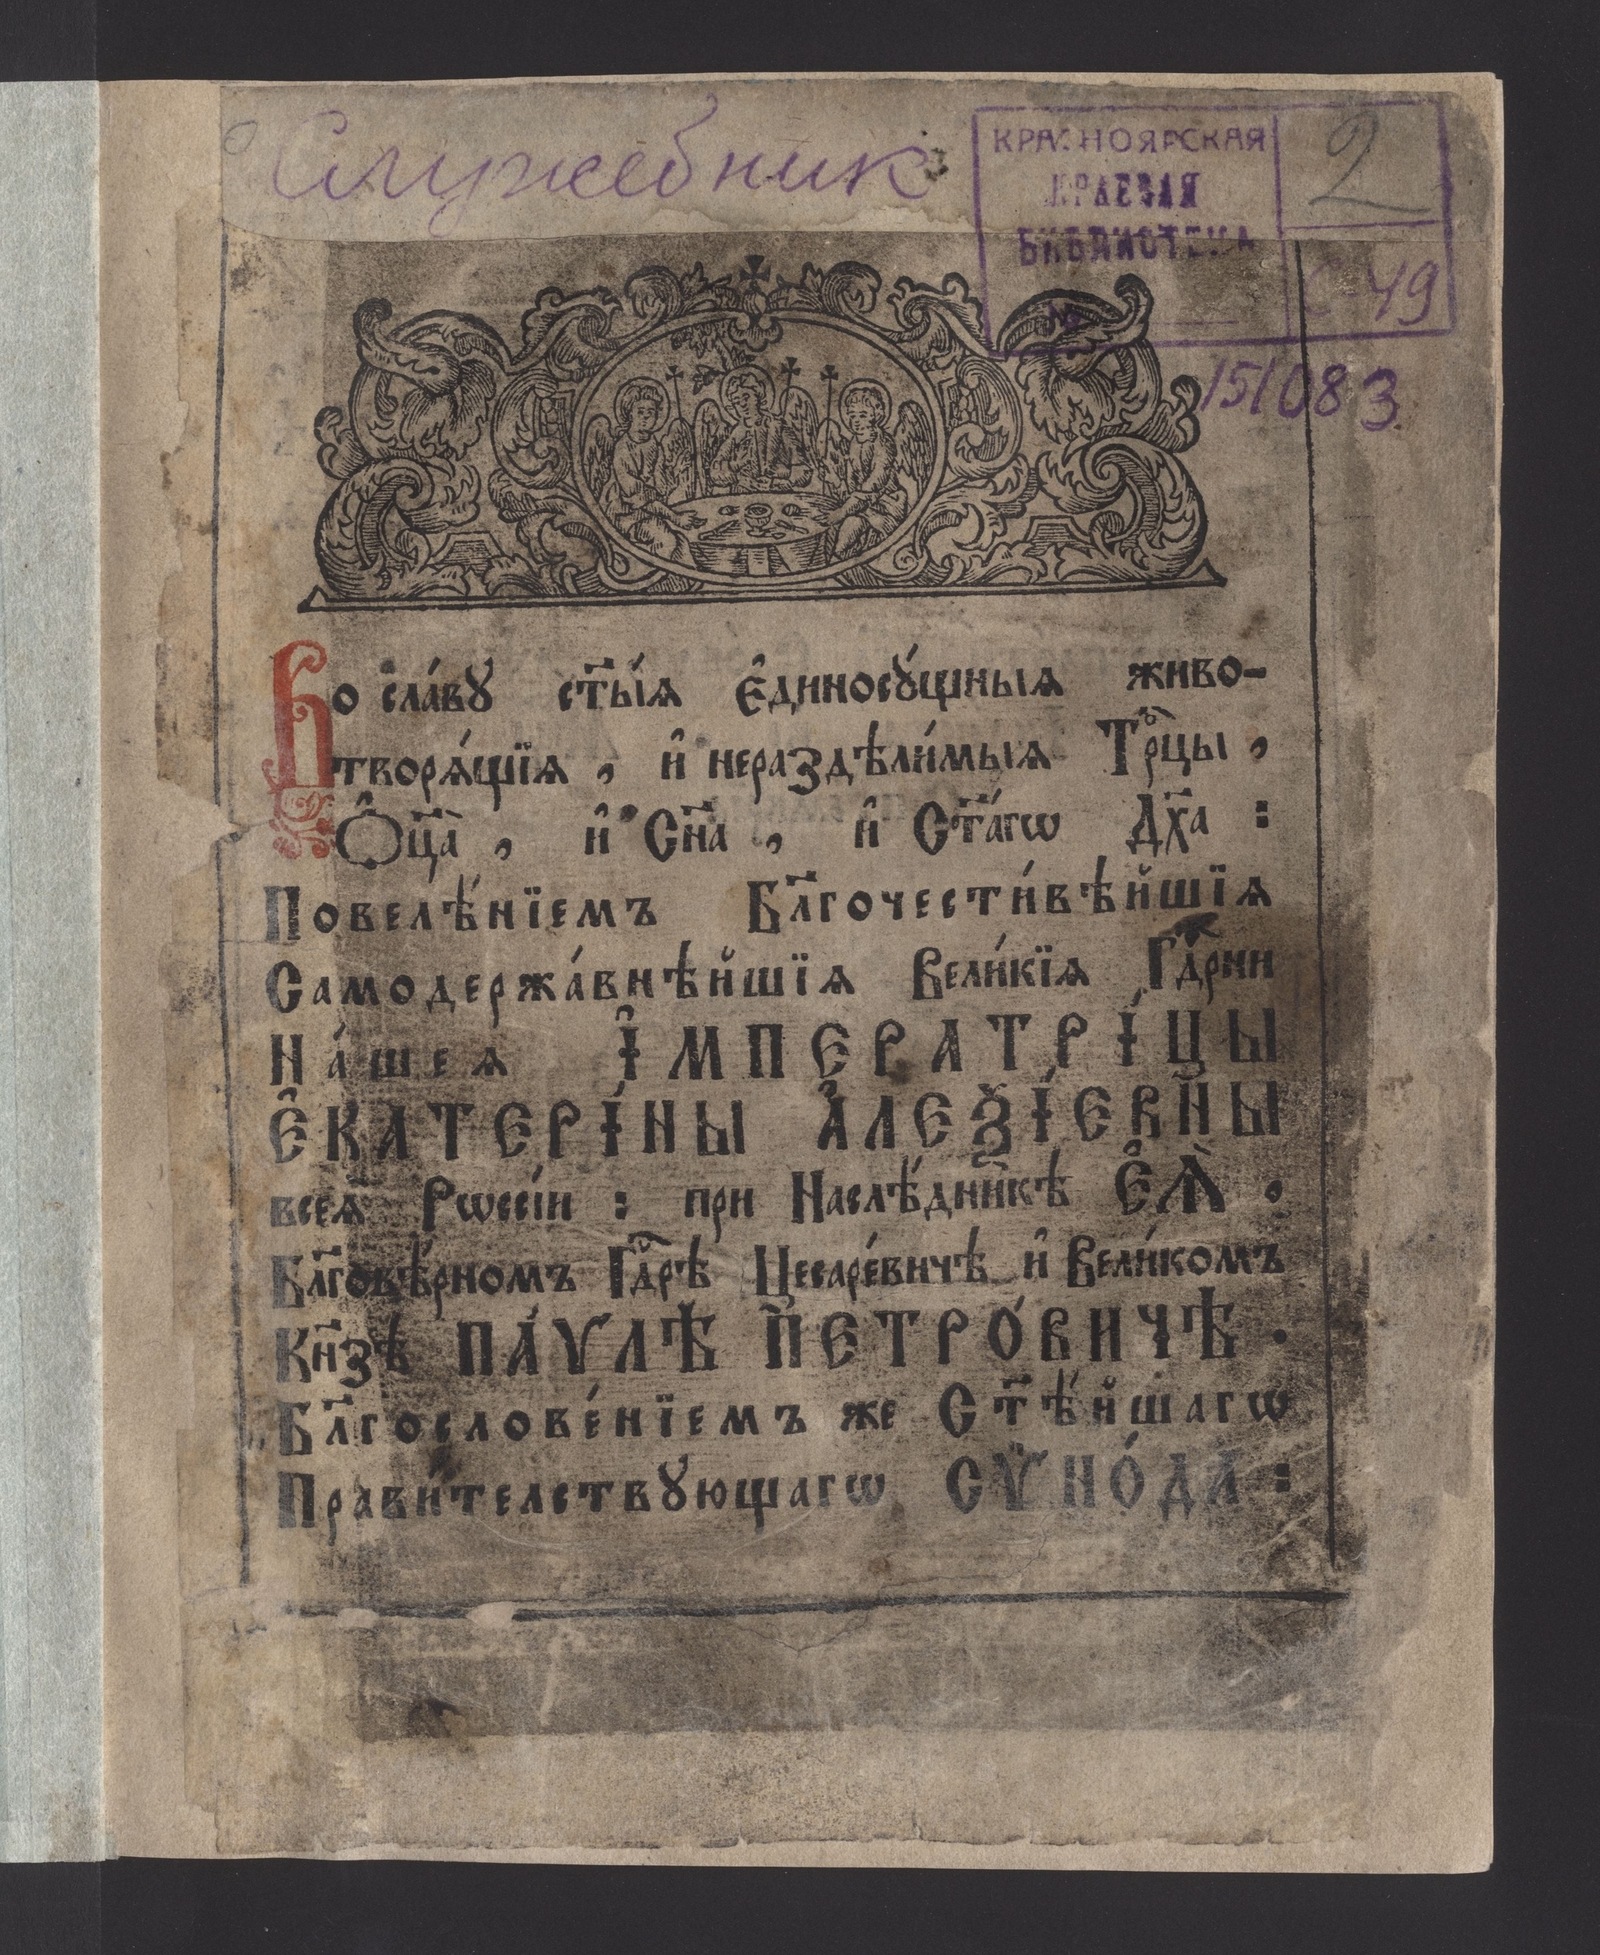 Служебник
КРАСНОЯРСКАЯ
КРАЕВАЯ
БИБЛИОТЕКА
№
2
С-49
151083
Во сла́вꙋ ст҃ы́ѧ є҆диносꙋ́щныѧ живо-
творѧ́щїѧ , и҆ нераздѣли́мыѧ Трⷪ҇цы ,
Ѻ҆ц҃а̀ , и҆ Сн҃а , и҆ Ст҃а́гѡ Дх҃а :
Повелѣ́нїемъ Бл҃гочести́вѣйшїѧ
Самодержа́внѣйшїѧ Вели́кїѧ Гдⷭ҇рни
На́шеѧ І҆МПЕРАТРІ́ЦЫ
Є҆КАТЕРІ́НЫ А҆ЛЕѮІ́ЕВНЫ
всеѧ̀ Рѡссі́и : при Наслѣ́дникѣ Є҆Ѧ̀ ,
Бл҃говѣ́рномъ Гдⷭ҇рѣ Цесаре́вичѣ и҆ Вели́комъ
Кн҃зѣ ПА́ѴЛѢ ПЕТРО́ВИЧѢ .
Бл҃гослове́нїемъ же Ст҃ѣ́йшагѡ
Прави́телствꙋющагѡ СѴНО́ДА :